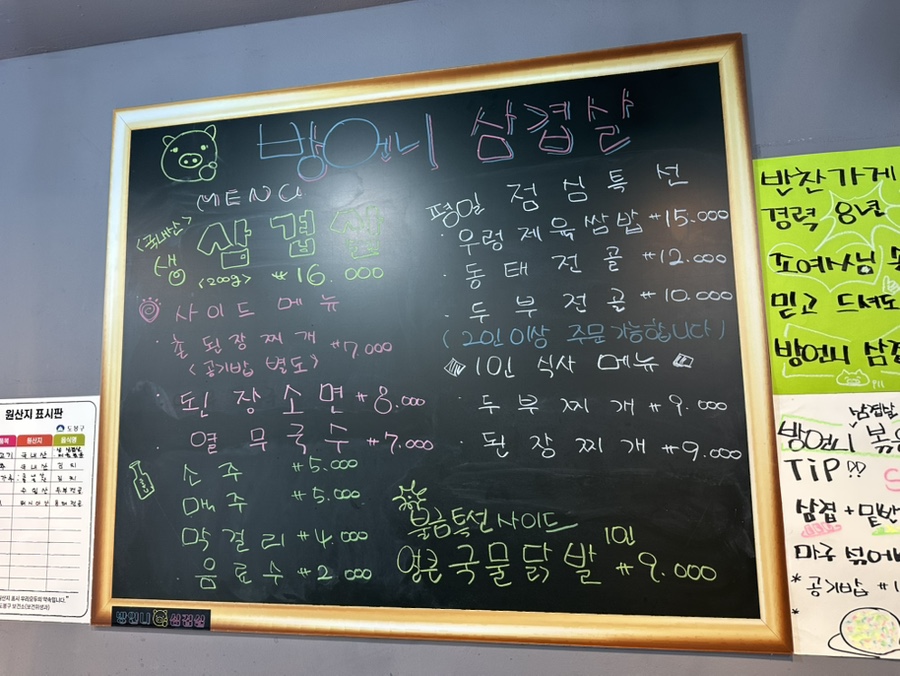 방언니 삼겹살
MENU
<국내산>
생
삼겹살
<200g> ₩16.000
사이드 메뉴
· 술된장찌개 ₩7.000
<공기밥 별도>
· 된장소면 ₩8.000
· 열무국수 ₩7.000
· 소주 ₩5.000
· 맥주 ₩5.000
· 막걸리 ₩4.000
· 음료수 ₩2.000
평일 점심특선
· 우렁제육쌈밥 ₩15.000
· 동태전골 ₩12.000
· 두부전골 ₩10.000
(2인이상 주문가능합니다)
1인 식사 메뉴
· 두부찌개 ₩9.000
· 된장찌개 ₩9.000
불금특선사이드
얼큰국물닭발 1인 ₩9.000
방언니 삼겹살
원산지 표시판
도봉구
원산지
음식명
국내산
도봉구 보건소(보건위생과)
반찬가게
경력 8년
조여사님
믿고 드셔도
방언니
방언니
TIP
삼겹+
* 공기밥
*